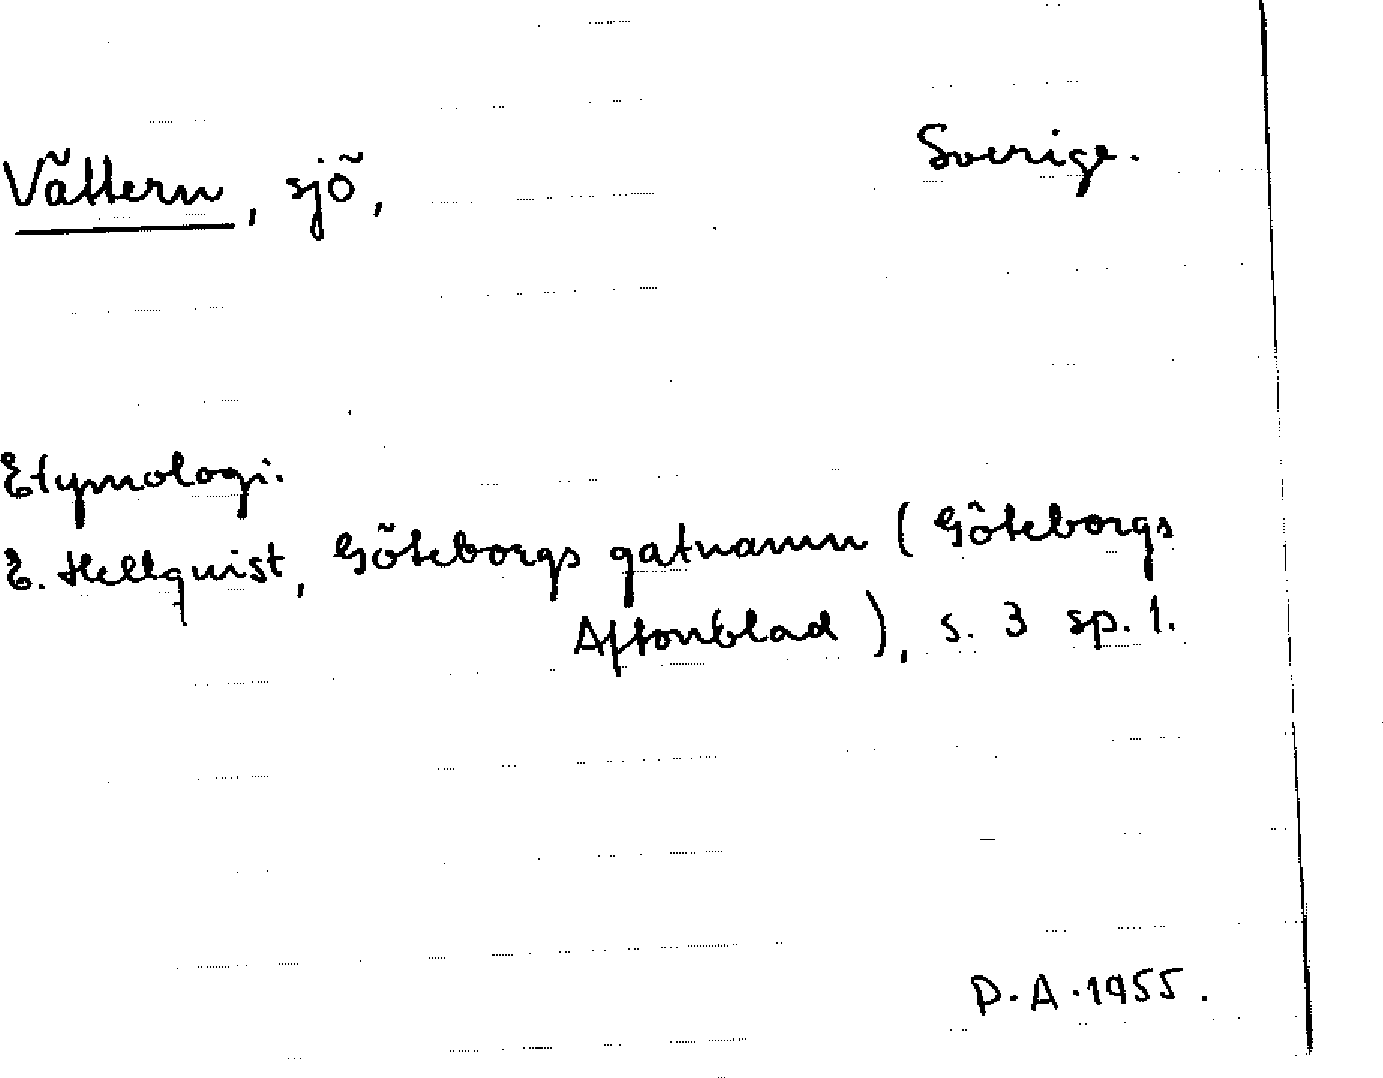 Vättern, sjö, Sverige.
Etymologi.
E. Hellquist, Göteborgs gatnamn (Göteborgs
Aftonblad), s. 3 sp. 1.
D. A. 1955.